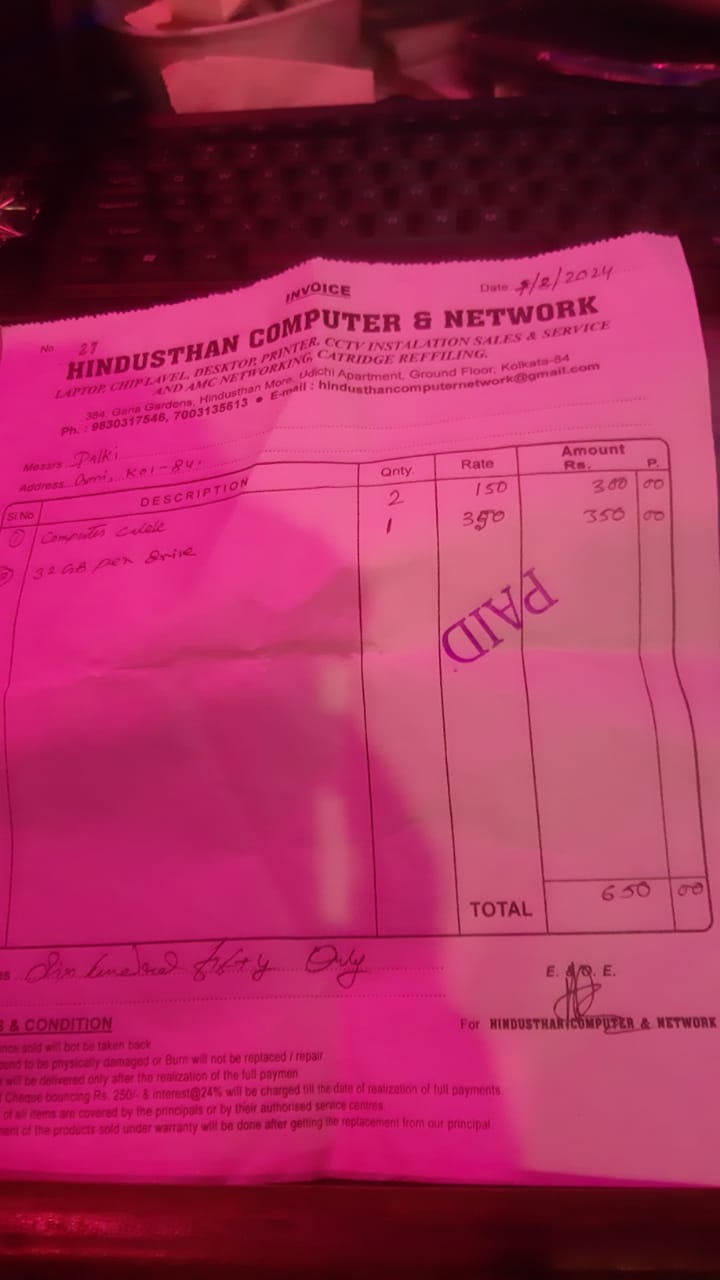 INVOICE
No. 27
Date /2/2024
HINDUSTHAN COMPUTER & NETWORK
LAPTOP, CHIPLAVEL, DESKTOP, PRINTER, CCTV INSTALATION SALES & SERVICE
AND AMC NETWORKING, CATRIDGE REFFILING.
384, Garia Gardens, Hindusthan More, Udichi Apartment, Ground Floor, Kolkata-84
Ph. : 9830317546, 7003135613 • E-mail : hindusthancomputernetwork@gmail.com
Messrs Palki
Address Kol-84.
Sl.No. DESCRIPTION Qnty. Rate Amount
Rs. P.
① Computer 2 150 300 00
32 GB pen drive 1 350 350 00
PAID
TOTAL 650 00
Six hundred fifty Only
E. & O. E.
For HINDUSTHAN COMPUTER & NETWORK
& CONDITION
once sold will bot be taken back
to be physically damaged or Burn will not be replaced / repair
will be delivered only after the realization of the full paymen
Cheque bouncing Rs. 250/- & interest@24% will be charged till the date of realization of full payments.
of all items are covered by the principals or by their authorised service centres.
of the products sold under warranty will be done after getting the replacement from our principal.